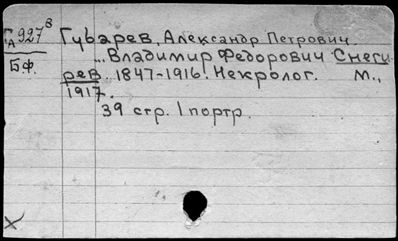 ГА 927 в
БФ.
Губарев, Александр Петрович.
... Владимир Федорович Снеги
рев. 1847-1916. Некролог. М.,
1917.
39 стр. 1 портр.